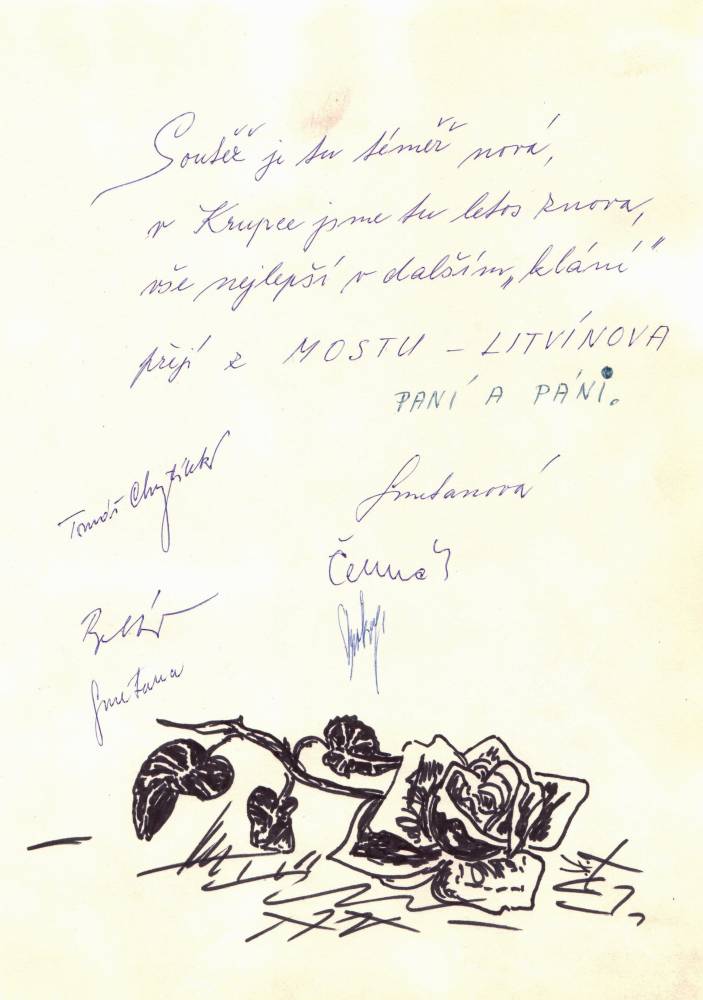 Soutěž je tu téměř nová,
v Krupce jsme tu letos znova,
vše nejlepší v dalším „klání“
přejí z MOSTU – LITVÍNOVA
PANÍ A PÁNI.
Tomáš
Smetanová
Černá
Smetana